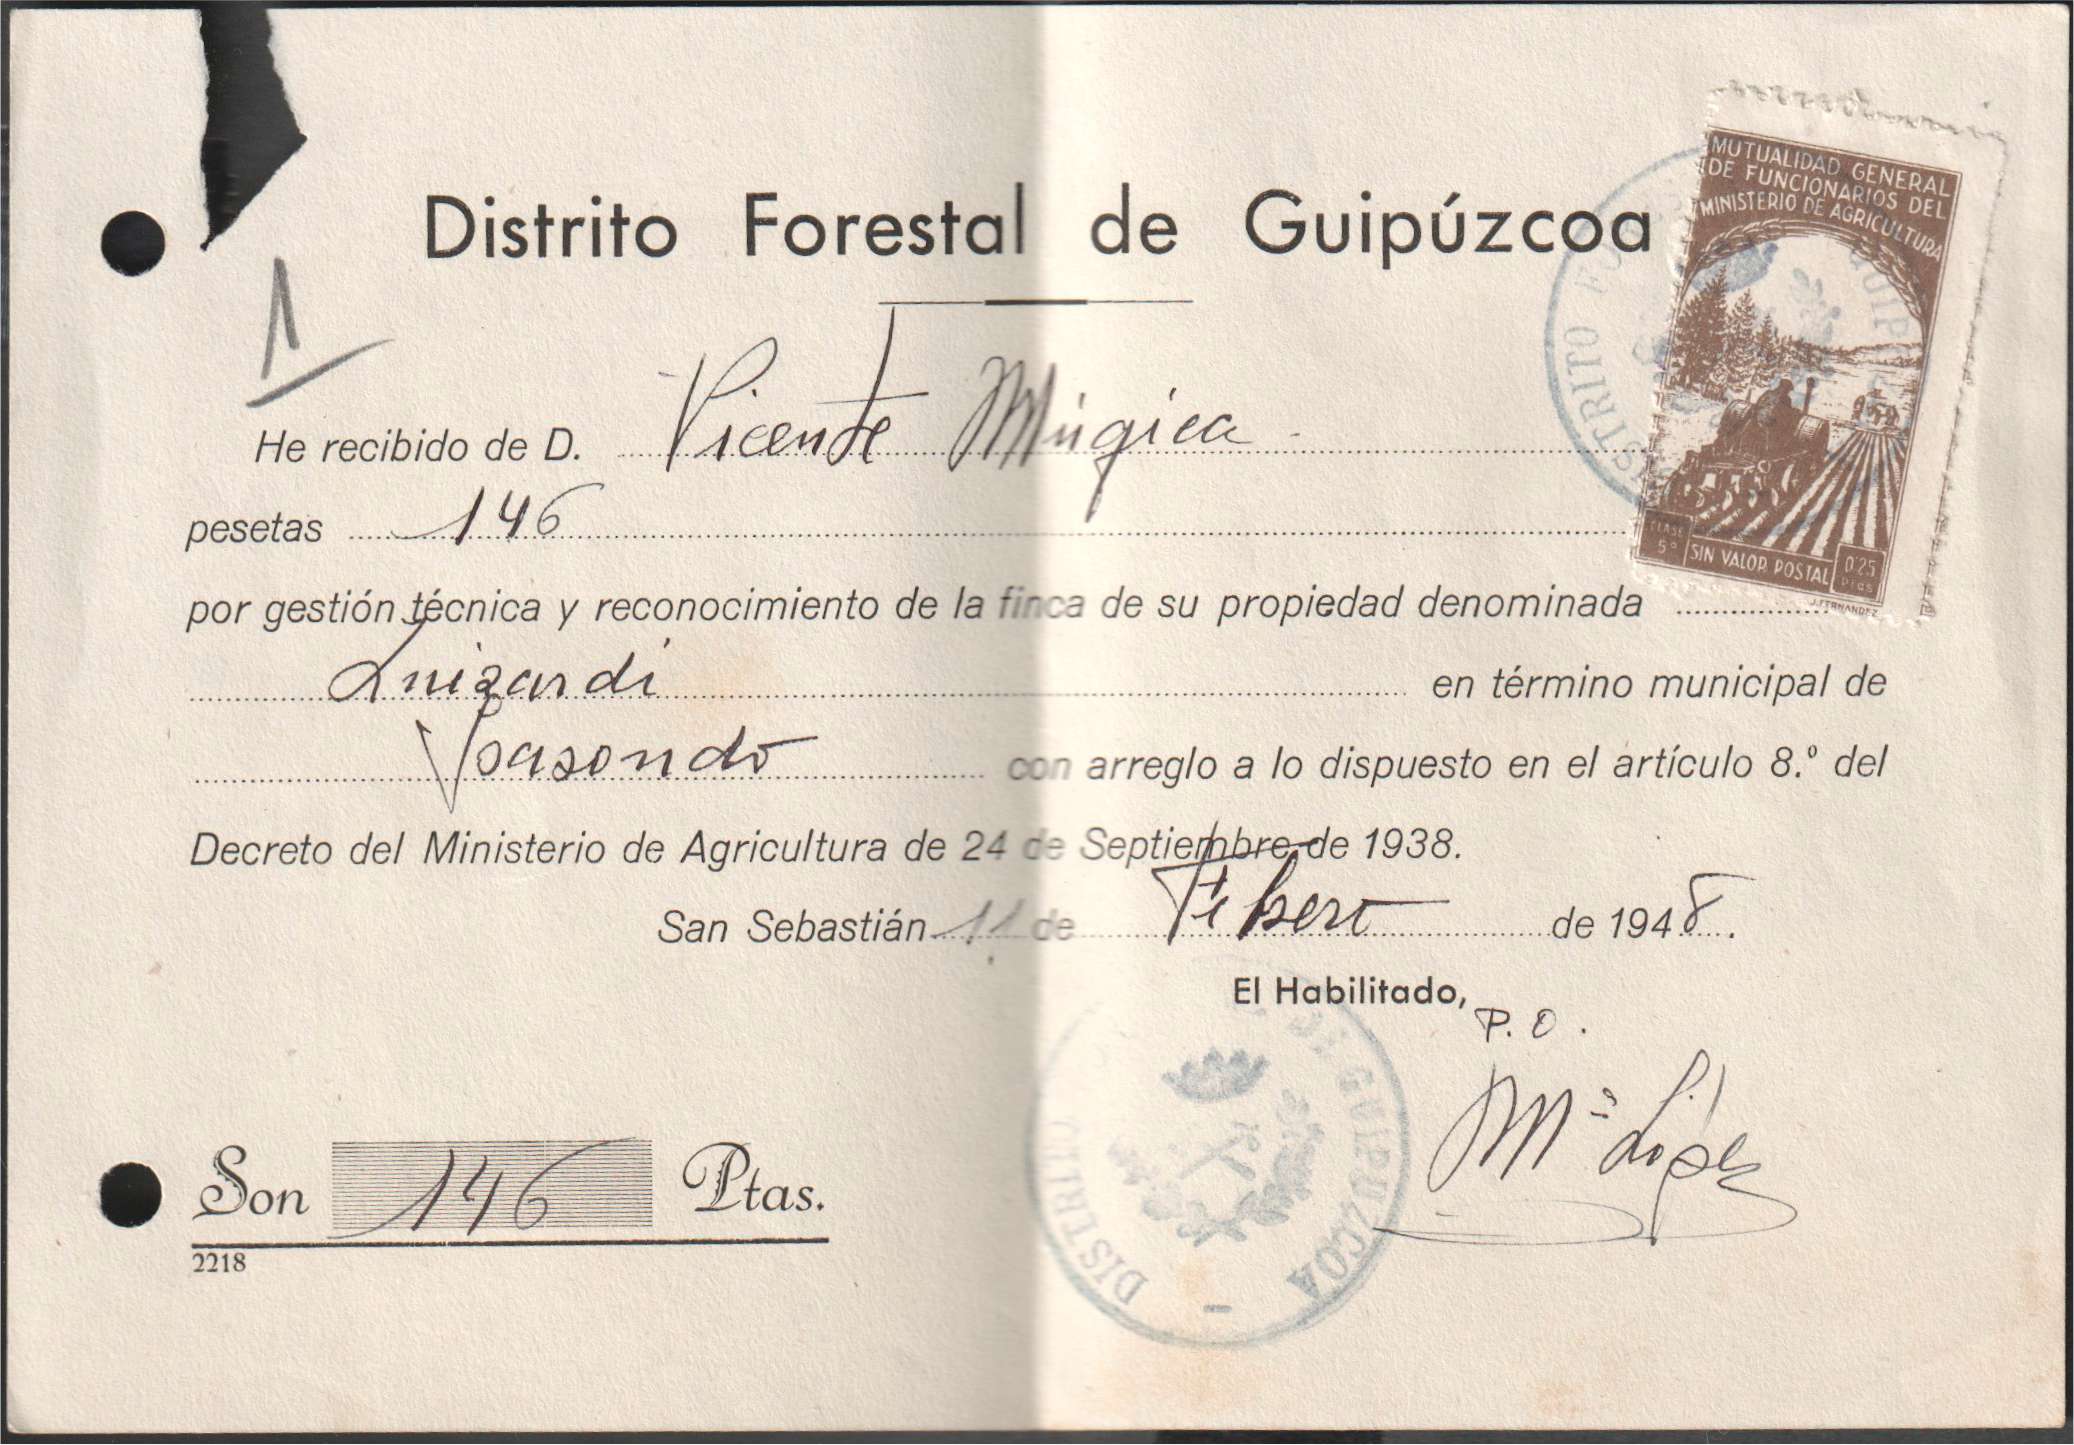 Distrito Forestal de Guipúzcoa
MUTUALIDAD GENERAL
DE FUNCIONARIOS DEL
MINISTERIO DE AGRICULTURA
CLASE 5ª SIN VALOR POSTAL 0'25 Ptas
J. FERNANDEZ
DISTRITO FORESTAL DE GUIPUZCOA
1
He recibido de D. Vicente Múgica
pesetas 146
por gestión técnica y reconocimiento de la finca de su propiedad denominada
en término municipal de
Ysasondo con arreglo a lo dispuesto en el artículo 8.º del
Decreto del Ministerio de Agricultura de 24 de Septiembre de 1938.
San Sebastián 11 de Febero de 1948.
El Habilitado,
P. O.
Mª López
DISTRITO DE GUIPUZCOA
Son 146 Ptas.
2218